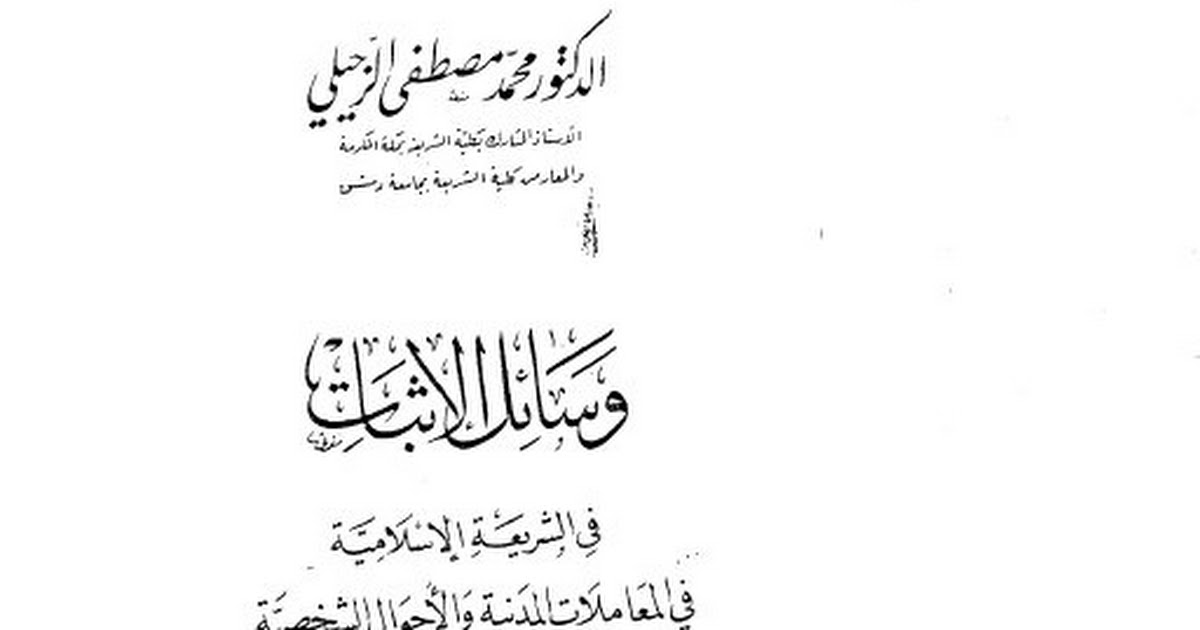 الدكتور محمّد مصطفى الزّحيلي
الأستاذ المشارك بكلية الشريعة بمكة المكرمة
والمعار من كلية الشريعة بجامعة دمشق
وَسَائِل الإثبَات
في الشريعَةِ الإسْلَاميَّة
في المعَاملَات المدَنية وَالأحوَال الشخصيَّة